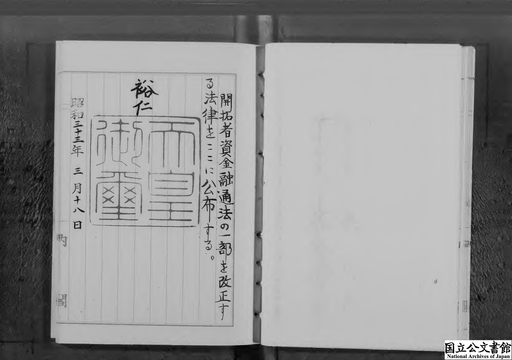 開拓者資金融通法の一部を改正す
る法律をここに公布する。
裕仁
天皇
御璽
昭和三十三年 三月十八日
内閣
国立公文書館
National Archives of Japan